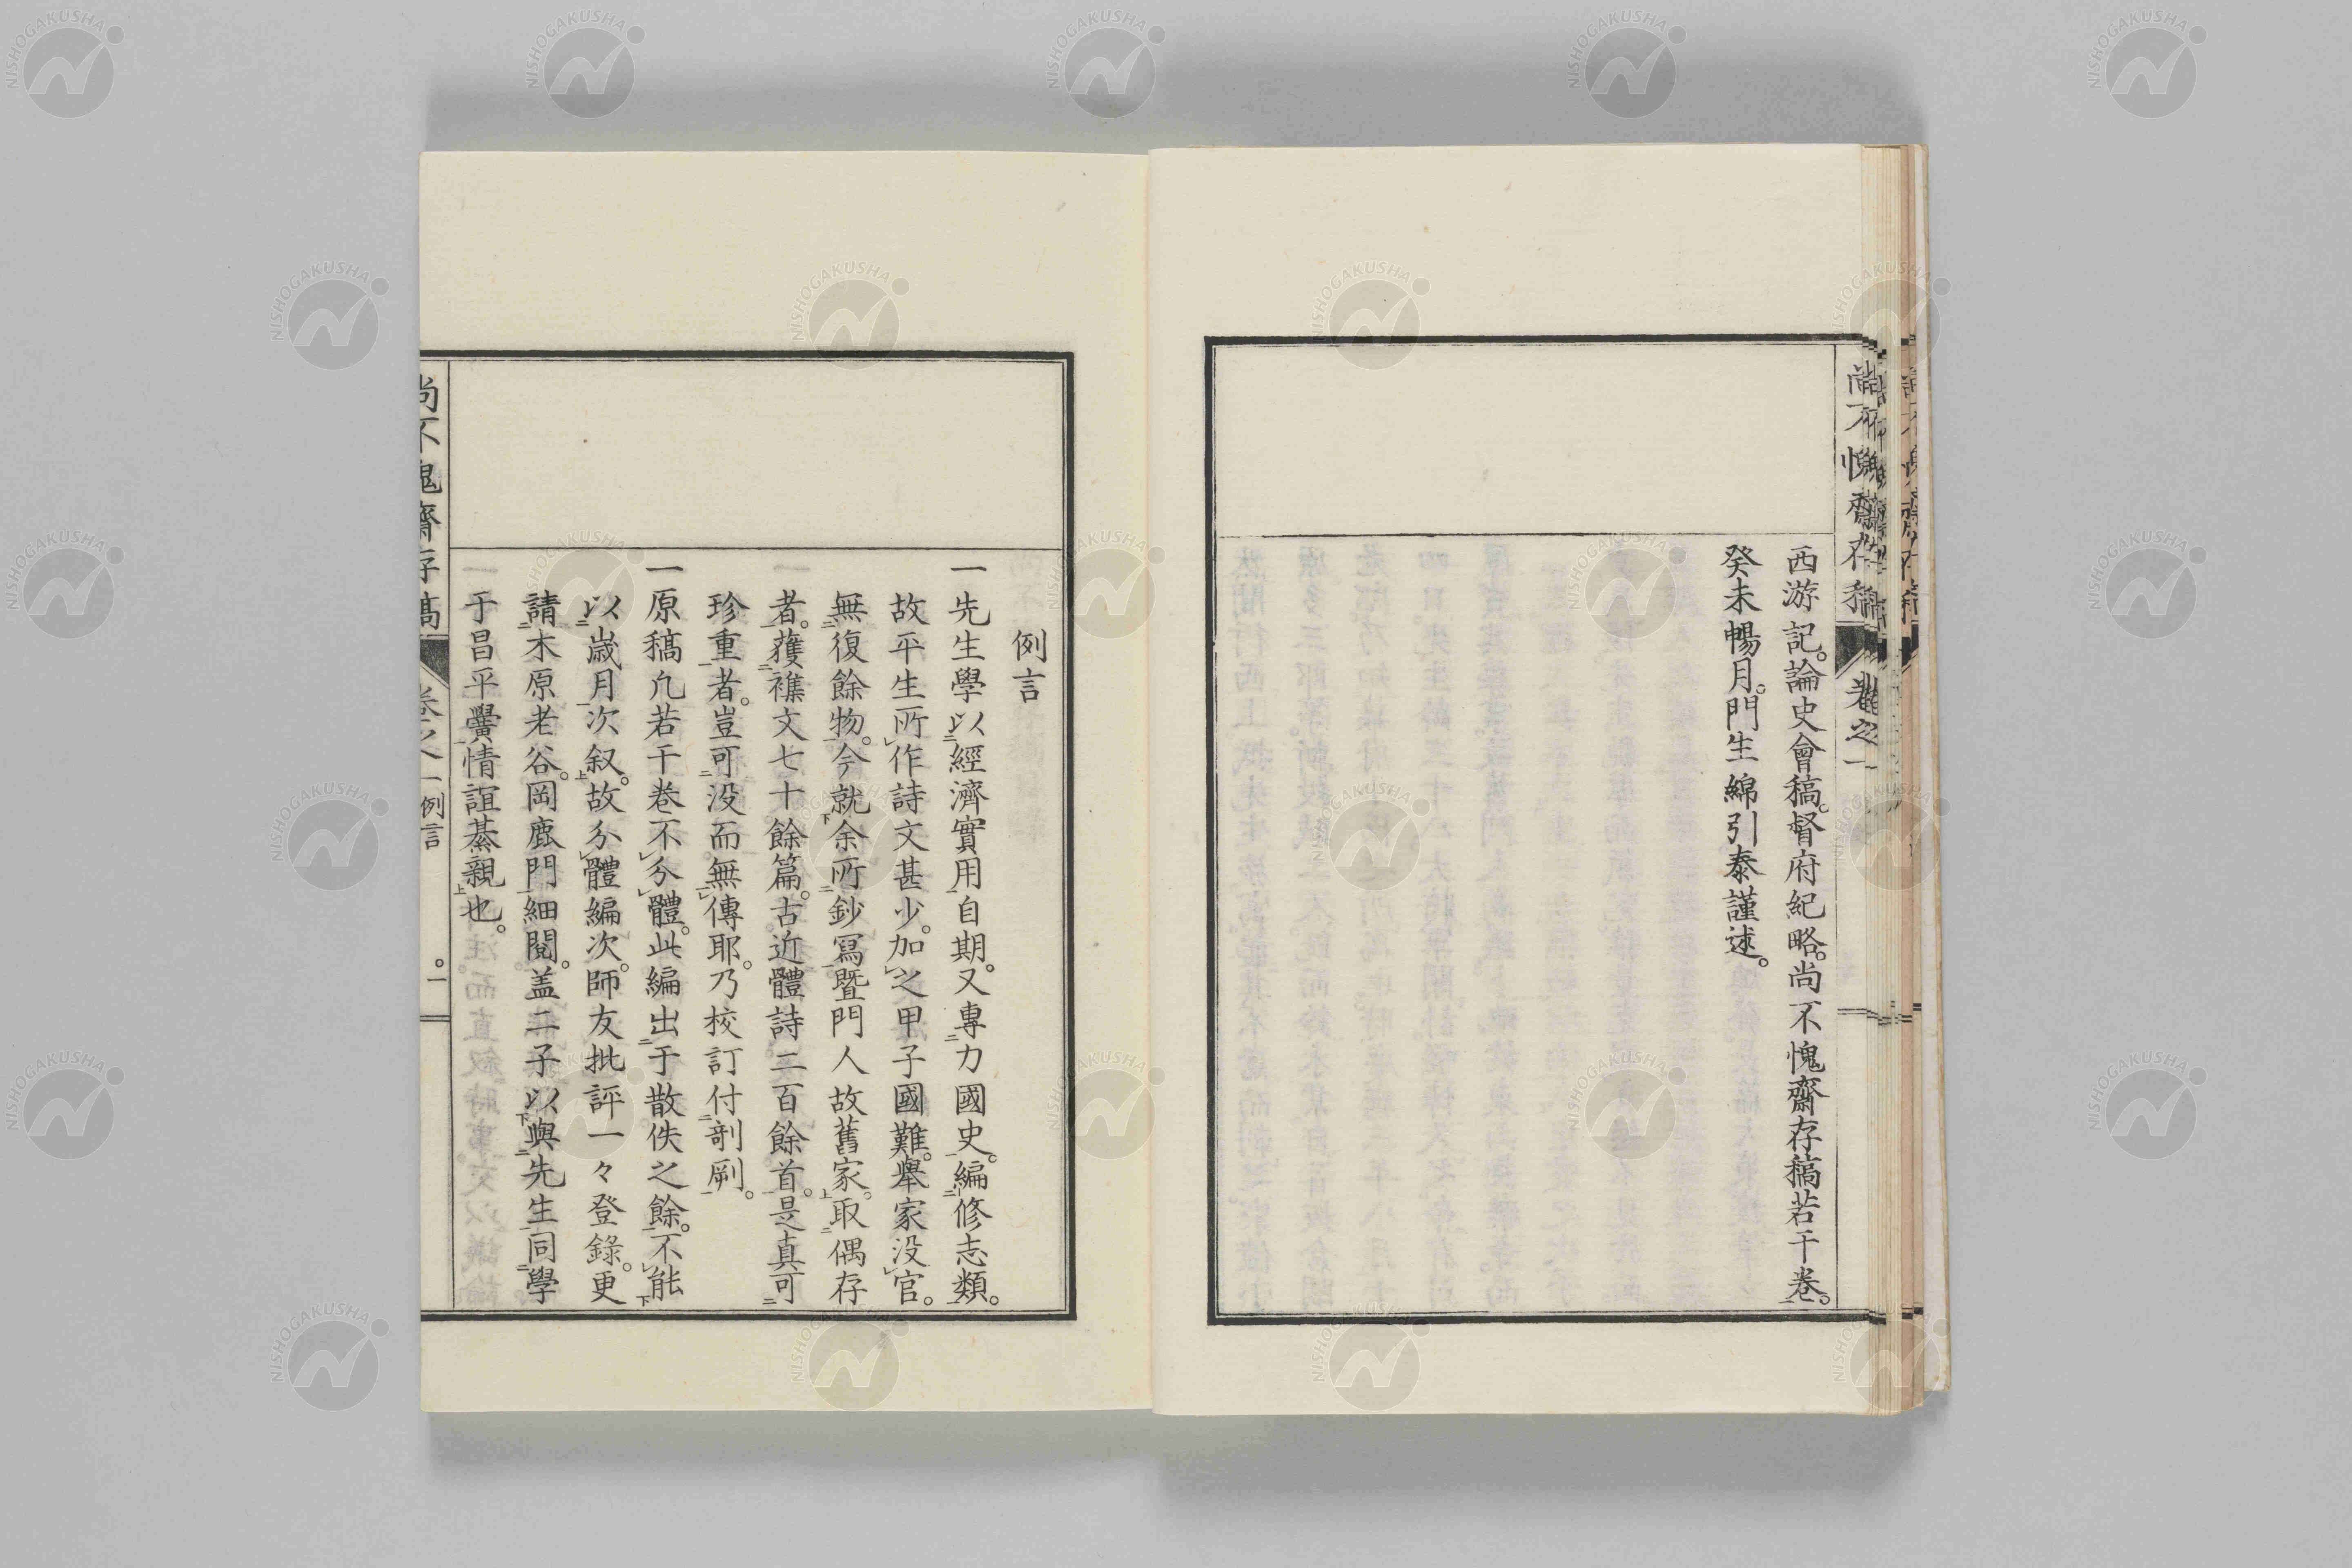 西游記。論史會稿。督府紀略。尚不愧齋存稿若干卷。
癸未暢月。門生綿引泰謹述。
尚不愧齋存稿
卷之一
例言
一先生學以經濟實用自期。又專力國史。編修志類。
故平生所作詩文甚少。加之甲子國難。舉家沒官。
無復餘物。今就余所鈔寫暨門人故舊家。取偶存
者。蒦襍文七十餘篇。古近體詩二百餘首。是真可
珍重者。豈可沒而無傳耶。乃校訂付剞劂。
一原稿凡若干卷不分體。此編出于散佚之餘。不能
以歲月次叙。故分體編次。師友批評一々登錄。更
請木原老谷。岡鹿門細閱。盖二子以與先生同學
于昌平黌情誼綦親也。
尚不愧齋存稿
卷之一
例言
一
NISHOGAKUSHA